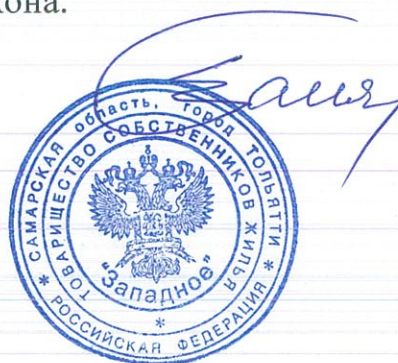 кона.
* САМАРСКАЯ область, город ТОЛЬЯТТИ *
РОССИЙСКАЯ ФЕДЕРАЦИЯ
ТОВАРИЩЕСТВО СОБСТВЕННИКОВ ЖИЛЬЯ
*
"Западное"